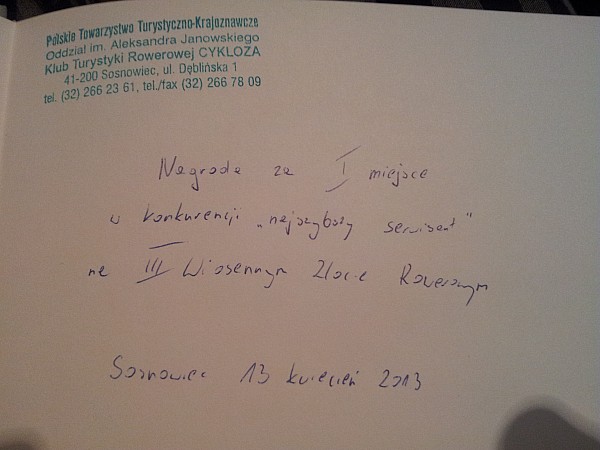 Polskie Towarzystwo Turystyczno-Krajoznawcze
Oddział im. Aleksandra Janowskiego
Klub Turystyki Rowerowej CYKLOZA
41-200 Sosnowiec, ul. Dęblińska 1
tel. (32) 266 23 61, tel./fax (32) 266 78 09
Nagroda za I miejsce
w konkurencji „najszybszy serwisant"
na III Wiosennym Zlocie Rowerowym
Sosnowiec 13 kwiecień 2013